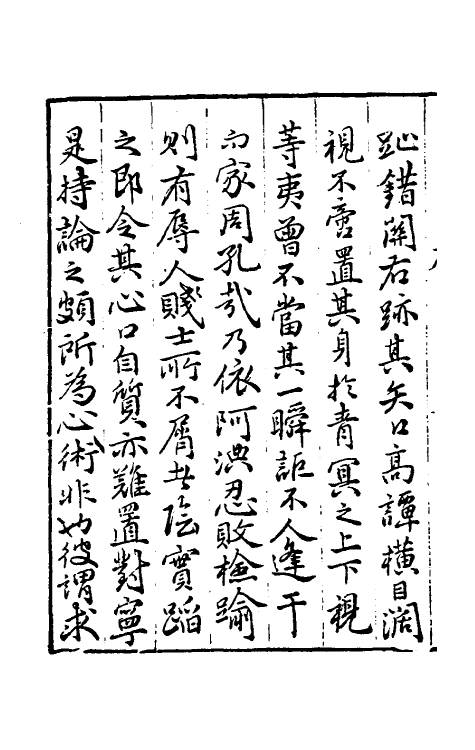 趾錯關右跡其矢口高譚橫目闊
視不啻置其身於青冥之上下視
等夷曾不當其一瞬詎不人逢干
而家周孔哉乃依阿淟忍敗檢踰
則有辱人賤士所不屑者陰實蹈
之即令其心口自質亦難置對寧
是持論之頗所為心術非也彼謂求